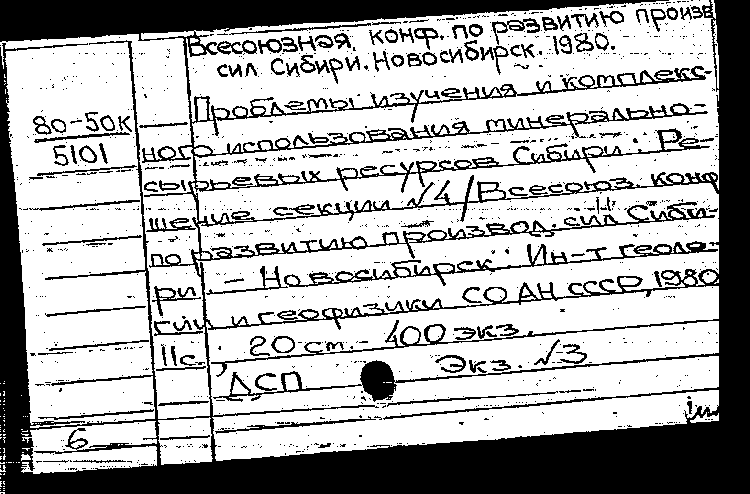 Всесоюзная конф. по развитию произв
сил Сибири. Новосибирск. 1980.
80-50К
5101
Проблемы изучения и комплекс-
ного использования минерально-
сырьевых ресурсов Сибири: Ре-
шение секции №4/Всесоюз. конф
по развитию производ. сил Сиби-
ри. - Новосибирск: Ин-т геоло-
гии и геофизики СО АН СССР, 1980
11с.; 20 ст. - 400 экз.
ДСП Экз. №3
6